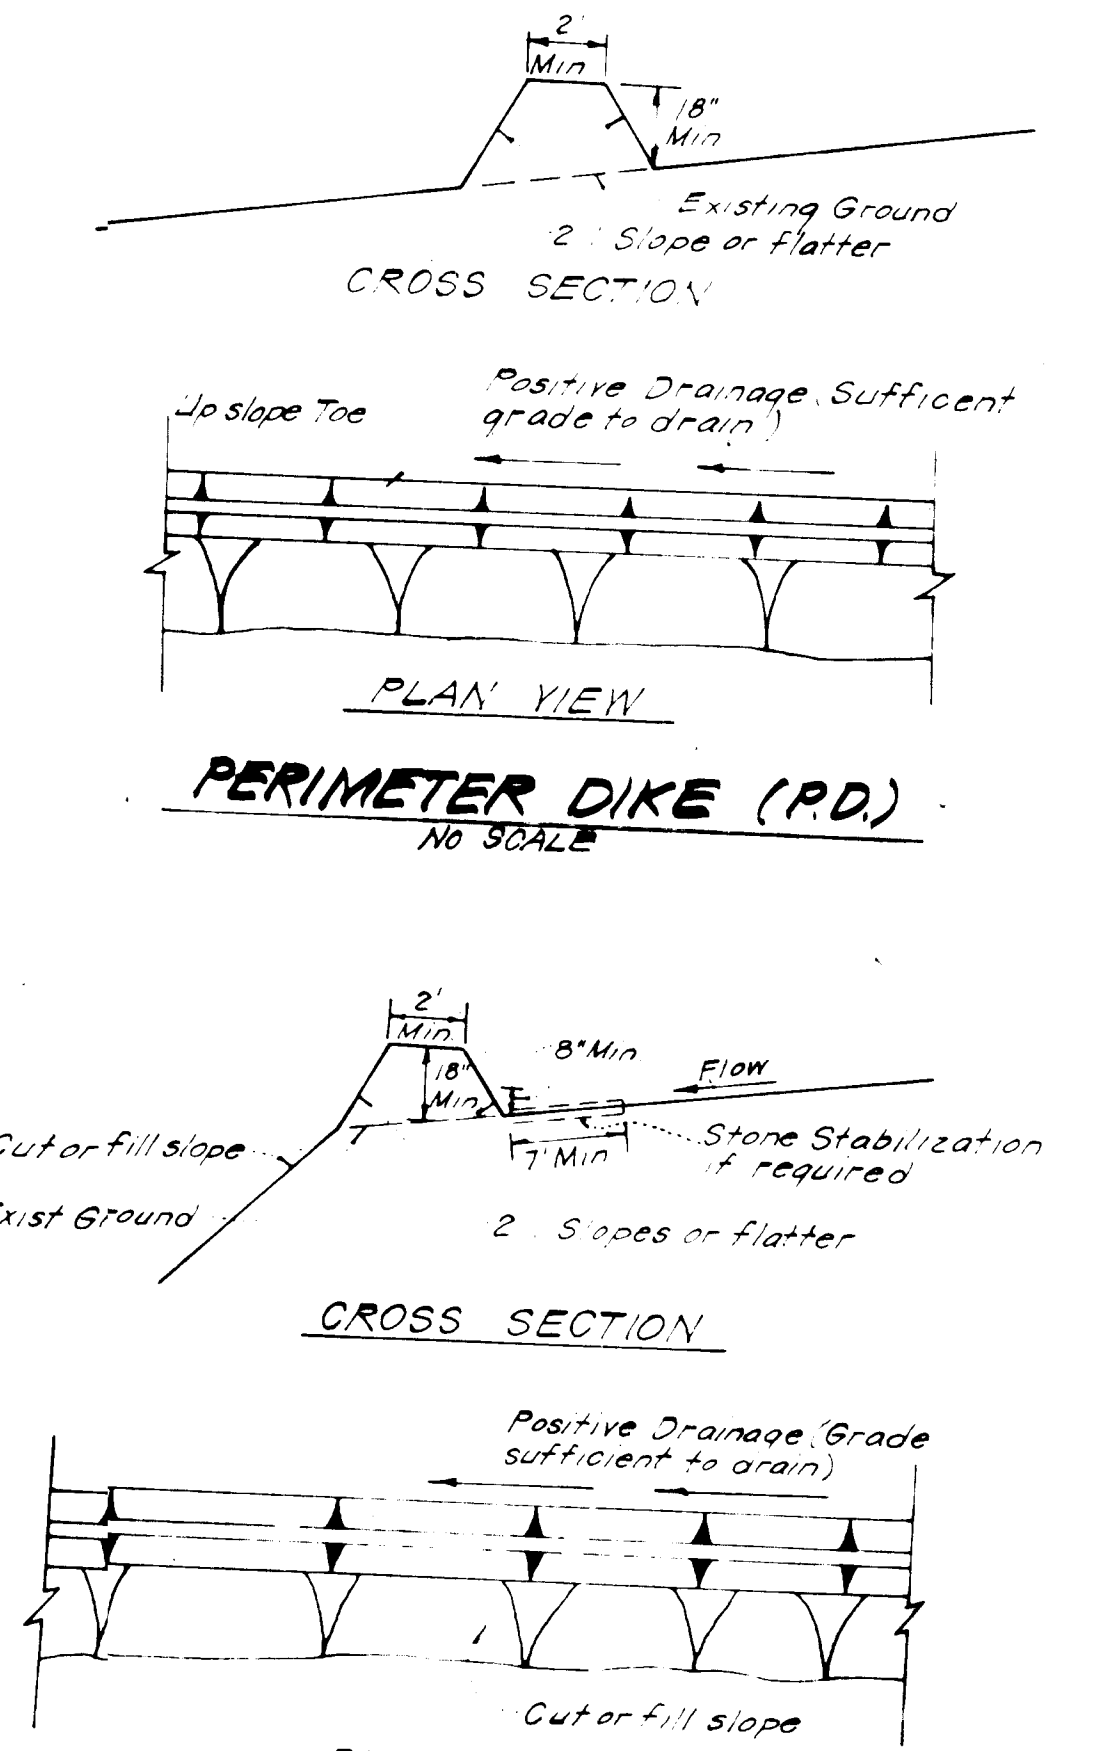 2'
Min
18"
Min
Existing Ground
2 : Slope or flatter
CROSS SECTION
Up slope Toe
Positive Drainage Sufficent
grade to drain)
PLAN VIEW
PERIMETER DIKE (P.D.)
NO SCALE
2'
Min.
18"
Min.
8" Min
Flow
7' Min
Cut or fill slope
Stone Stabilization
if required
Exist Ground
2 : Slopes or flatter
CROSS SECTION
Positive Drainage (Grade
sufficient to drain)
Cut or fill slope